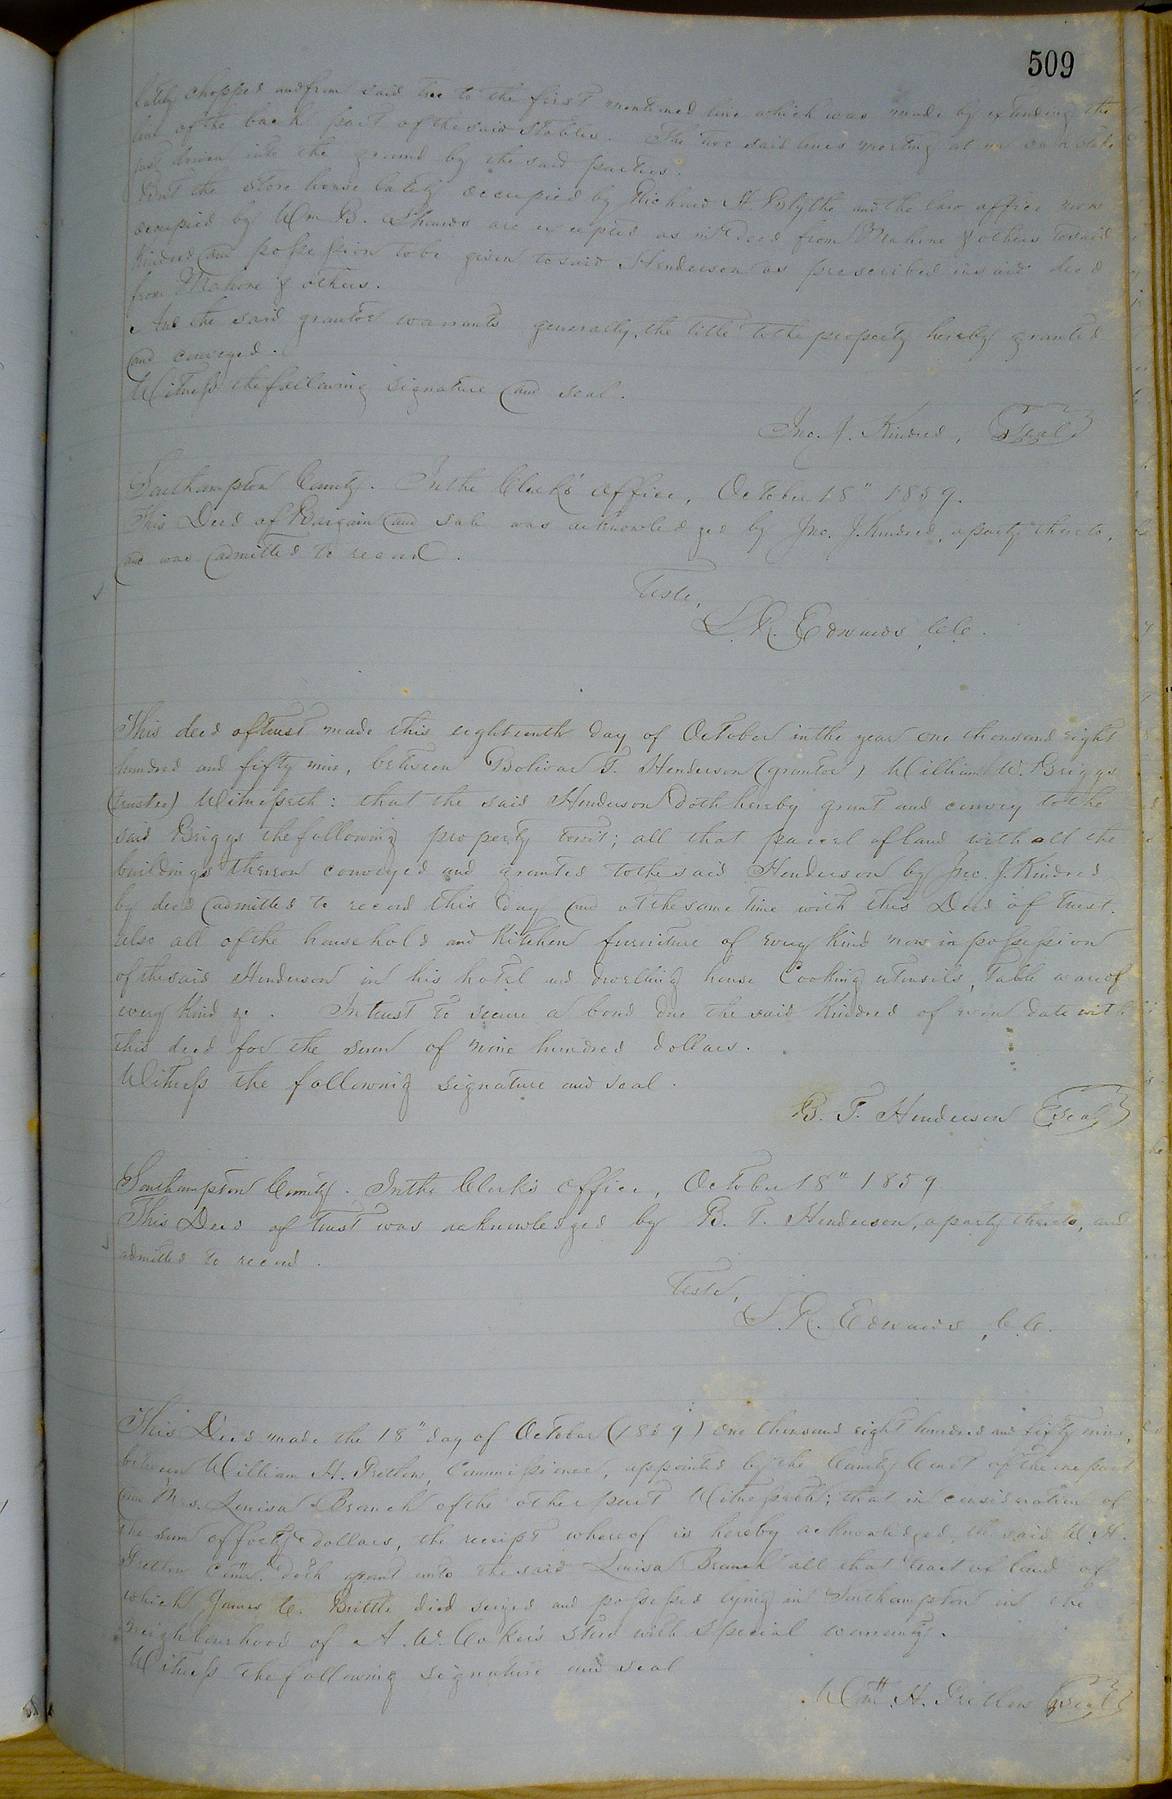 509
lately chopped and from said tree to the first mentioned line which was made by extending the
line of the back part of the said Stables. The two said lines meeting at a stake
just driven into the ground by the said parties.
But the Store house lately occupied by Richard H. Blythe and the law office now
occupied by Wm B. Shands are excepted as in deed from Mahone & others to said
Kindred and possession to be given to said Henderson as prescribed in said deed
from Mahone & others.
And the said grantor warrants generally, the title to the property hereby granted
and conveyed.
Witness the following signature and seal.
Jno. J. Kindred, Seal
Southampton County. In the Clerk's office, October 18" 1859.
This Deed of Bargain and sale was acknowledged by Jno. J. Kindred, a party thereto,
and was admitted to record.
Teste,
L. R. Edwards C.C.
This deed of trust made this eighteenth day of October in the year one thousand eight
hundred and fifty nine, between Bolivar T. Henderson (grantor) William W. Briggs
(trustee) Witnesseth: that the said Henderson doth hereby grant and convey to the
said Briggs the following property towit; all that parcel of land with all the
buildings thereon conveyed and granted to the said Henderson by Jno. J. Kindred
by deed admitted to record this day and at the same time with this Deed of trust.
also all of the household and Kitchen furniture of every kind now in possession
of the said Henderson in his hotel and dwelling house Cooking utensils, Table ware of
every kind &c. In trust to secure a bond due the said Kindred of even date with
this deed for the sum of nine hundred dollars.
Witness the following signature and seal.
B. T. Henderson Seal
Southampton County. In the Clerk's office, October 18" 1859
This Deed of trust was acknowledged by B. T. Henderson, a party thereto, and
admitted to record.
Teste,
L. R. Edwards, C.C.
This Deed made the 18" day of October (1859) one thousand eight hundred and fifty nine,
between William H. Pretlow, Commissioner, appointed by the County Court of the one part
and Mrs. Louisa Branch of the other part Witnesseth; that in consideration of
the sum of forty dollars, the receipt whereof is hereby acknowledged, the said W. H.
Pretlow Comr. doth grant unto the said Louisa Branch all that tract of land of
which James C. Brittle died seized and possessed lying in Southampton in the
neighbourhood of A. W. Coker's store with special warranty.
Witness the following signature and seal
Wm H. Pretlow Seal